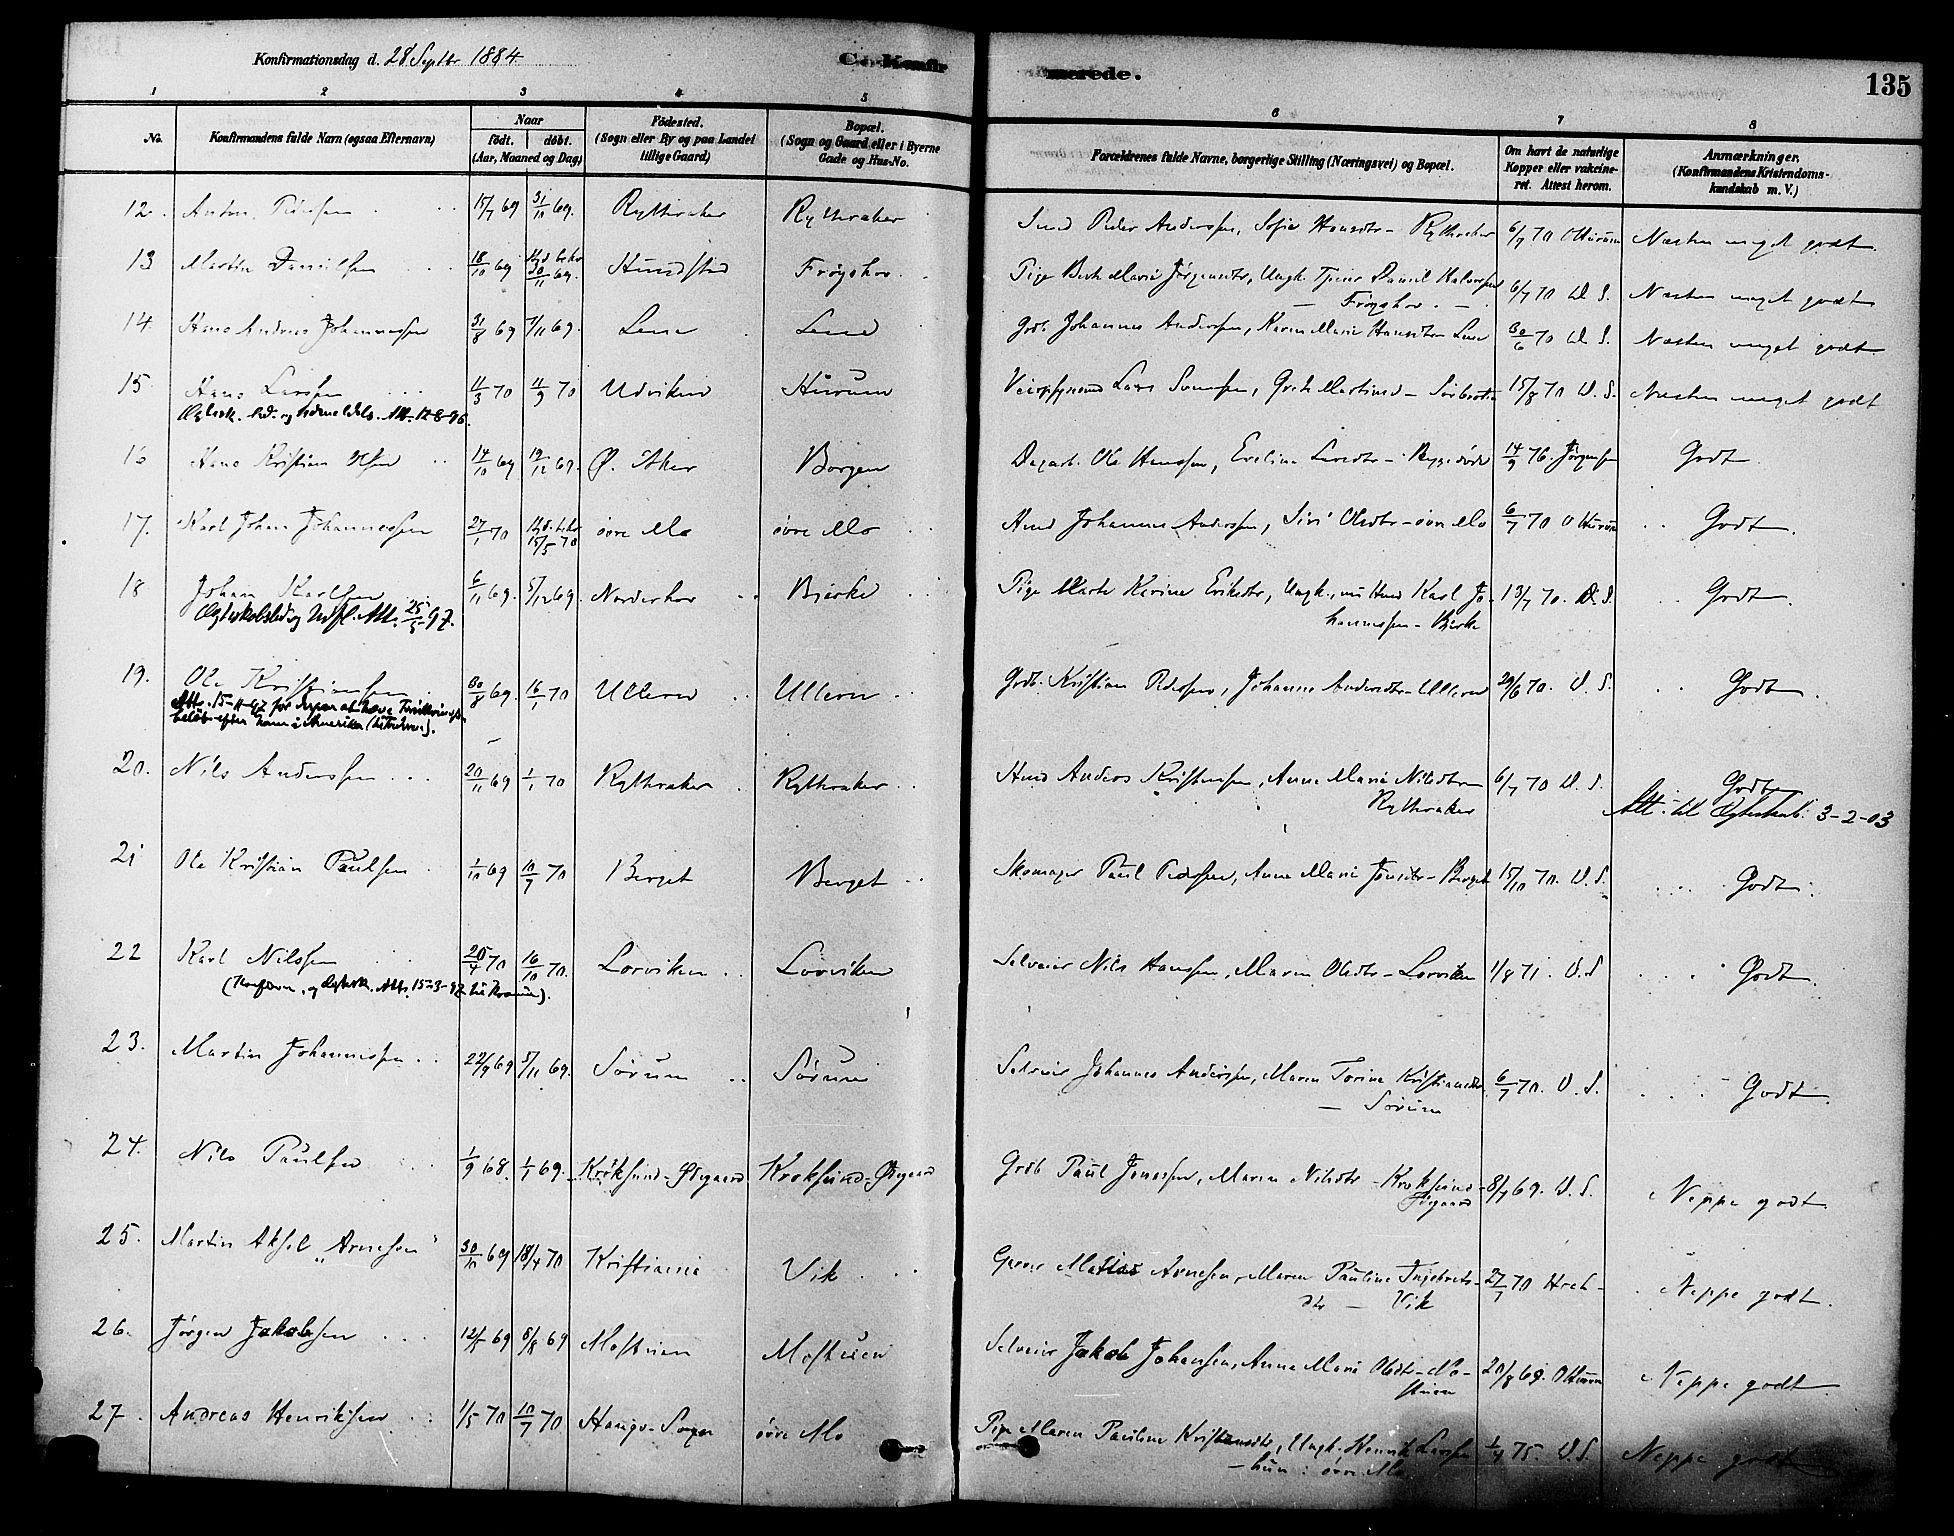 Konfirmationsdag d. 28 Septbr 1884
C. Konfirmerede.
135
1 2 3 4 5 6 7 8
No. Konfirmandens fulde Navn (ogsaa Efternavn) Naar födt. döbt. (Aar, Maaned og Dag) Födested. (Sogn eller By og paa Landet tillige Gaard) Bopæl. (Sogn og Gaard eller i Byerne Gade og Hus-No. Forældrenes fulde Navne, borgerlige Stilling (Næringsvei) og Bopæl. Om havt de naturlige Kopper eller vakcineret. Attest herom. Anmærkninger. (Konfirmandens Kristendomskundskab m. V.)
12. Anton 15/7 69 31/10 69. Rytteraker Rytteraker Peder Anderssen, Sofie Hansdtr - Rytteraker 6/7 70 Næsten meget godt.
13 Martin Danielsen 18/10 69 30/11 69. Hundstad Frøyshov. Pige Berthe Marie Jörgensdtr, Ungk. Tjener Daniel Halvorsen
- Frøyshov. - 6/7 70 Næsten meget godt
14. Hans Andreas Johannessen 31/8 69 7/11 69. Lene Lene Gdb. Johannes Anderssen, Karen Marie Hansdtr - Lene 30/6 70 Næsten meget godt.
15. Hans Larssen 11/3 70 4/9 70 Udviken Hurum Lars Svensen, 15/8 70 V. S. Næsten meget godt
16 Hans Kristian Olsen 14/10 69 19/12 69. Ø. Aker Borgen Dagarb. Ole Hanssen, Eveline 14/9 76. Jörgensen Godt.
17. Karl Johan Johannessen 27/1 70 15/5 70 övre Mo övre Mo Hmd Johannes Anderssen, Siri Olsdtr - övre Mo 6/7 70 Godt.
18 Johan Karlsen 6/11 69. 5/12 69. Norderhov Bjerke Pige Marte Karine Eriksdtr, Ungk., nu Hmd Karl Jo-
hannessen - Bjerke 13/7 70. Godt.
19. Ole Kristiansen 30/8 69. 16/1 70 Ullern Ullern Gdb. Kristian Johanne Andersdtr - Ullern 29/6 70. V. S. Godt.
20. Nils Anderssen 20/11 69 1/1 70 Rytteraker Rytteraker Hmd Anders Kristensen, Anne Marie Nilsdtr
Rytteraker 6/7 70 V. S. Godt
Att. til Ægteskab. 3-2-03
21 Ole Kristian Paulsen 1/10 69 10/7 70 Berget Berget Skomager Paul Anne Marie Jonsdtr - Berget 15/10 70. V. S. Godt.
22 Karl Nilssen 25/4 70 16/10 70. Lorviken Lorviken Selveier Nils Hanssen, Maren Olsdtr - Lorviken 1/8 71. V. S Godt.
23. Martin Johannessen 22/9 69 5/11 69. Sörum Sörum Selveier Johannes Anderssen, Maren Torine Kristiansdtr
- Sörum 6/7 70. V. S. Godt.
24. Nils Paulsen 1/9 68. 1/1 69. Kroksund-Ødegaard Kroksund-Ødegaard Gdb Paul Jonassen, Maren Nilsdtr - Kroksund-
Ødegaard 8/7 69. V. S. Neppe godt.
25. Martin Aksel „Arnesen" 30/10 69 18/4 70 Kristiania Vik Matias Arnesen, Maren Pauline Ingebrets-
dtr - Vik 27/7 70 Neppe godt.
26. Jørgen Jakobsen 12/5 69 8/8 69 Mostuen Mostuen Selveier Jakob Johansen, Anne Marie Olsdtr - Mo-
stuen 20/8 69. Neppe godt.
27. Andreas Henriksen 1/5 70 10/7 70 Haugs-Sogn övre Mo Pige Maren Pauline Kristiansdtr, Ungk. Henrik Larssen
- hun : övre Mo 75. V. S. Neppe godt